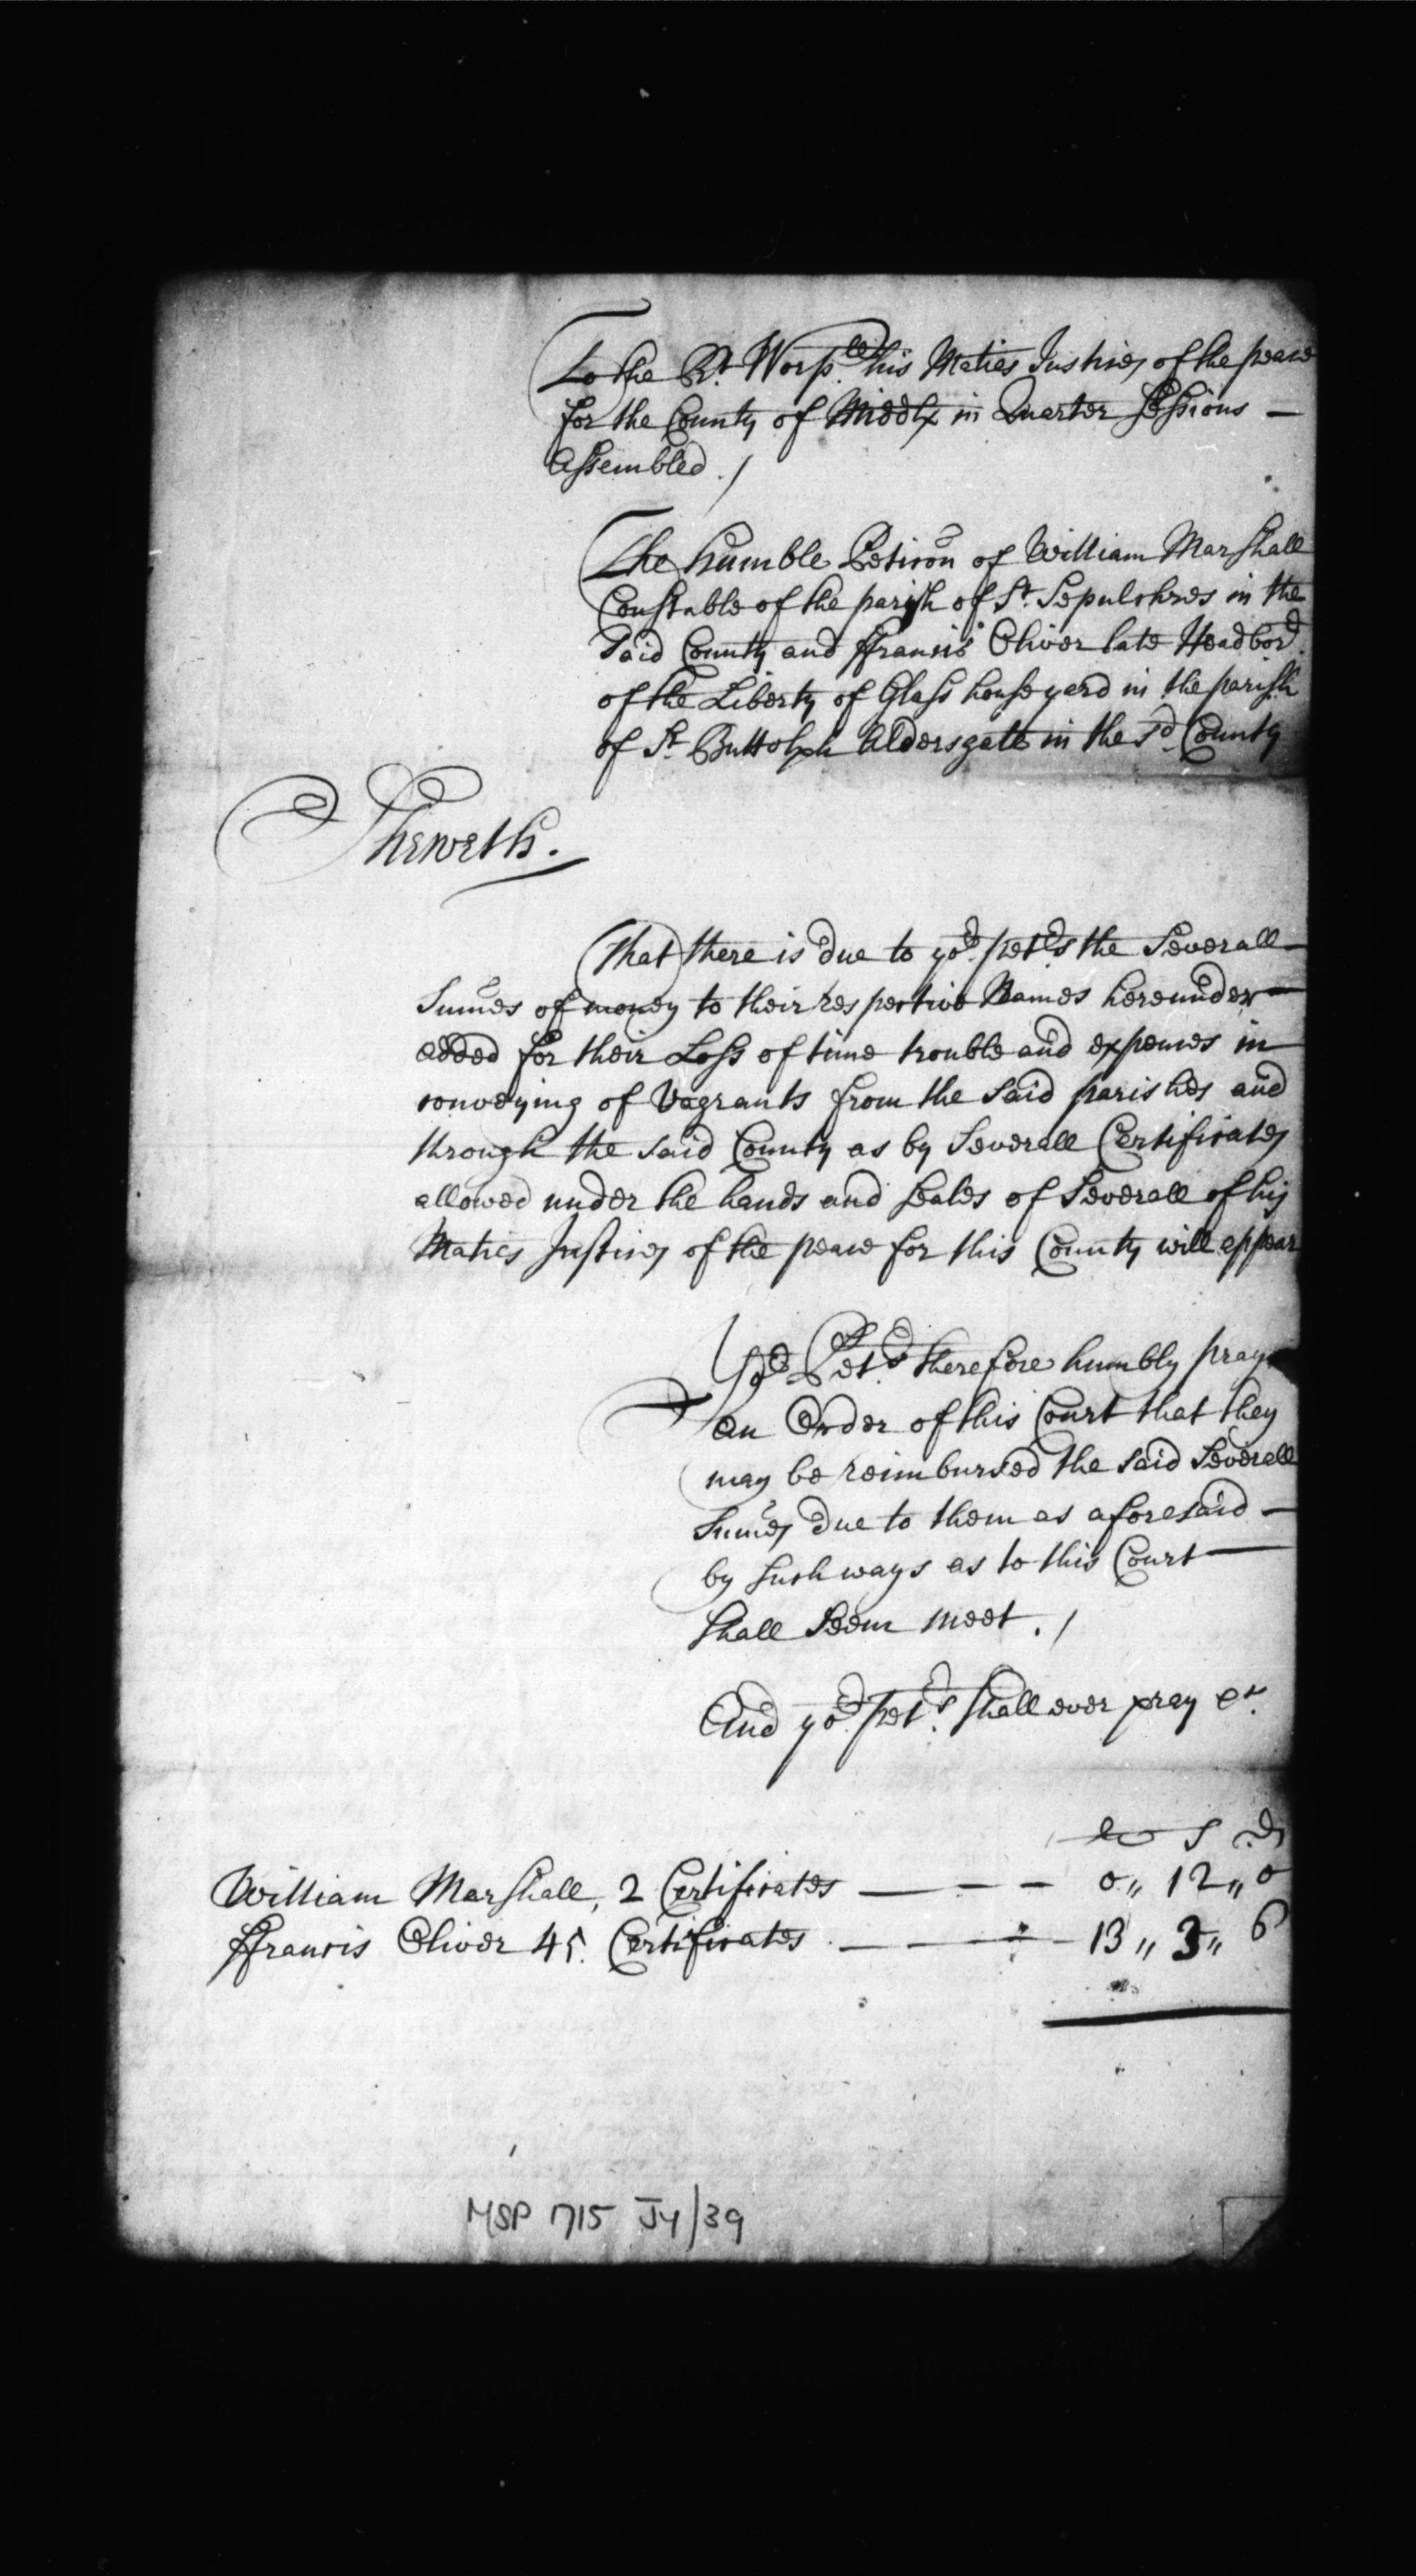 To the Rt. Worspll his Maties Justices of the peace
for the County of Middx in Quarter Sessions —
Assembled ./
The humble Peticon of William Marshall
Constable of the parish of St. Sepulchres in the
Said County and ffrancis Oliver late Headborr
of the Liberty of Glasshouse yard in the parish
of St. Buttolph Aldersgate in the sd. County
Sheweth.
That there is due to yor. petrs the Severall
Sumes of money to their respective Names hereunder
added for their Loss of time trouble and expences in
conveying of Vagrants from the said parishes and
through the said County as by Severall Certificates
allowed under the hands and Seales of Severall of his
Maties Justices of the peace for this County will appear
Yor Petrs. therefore humbly pray
an Order of this Court that they
may be reimbursed the said Severall
Sumes due to them as aforesaid —
by such ways as to this Court —
shall seem meet ./
And yor. petrs. shall ever pray &c.
li s d
William Marshall, 2 Certificates — — — 0,, 12,, 0
ffrancis Oliver 45. Certificates — — — 13,, 3,, 6
MSP 1715 Jy/39